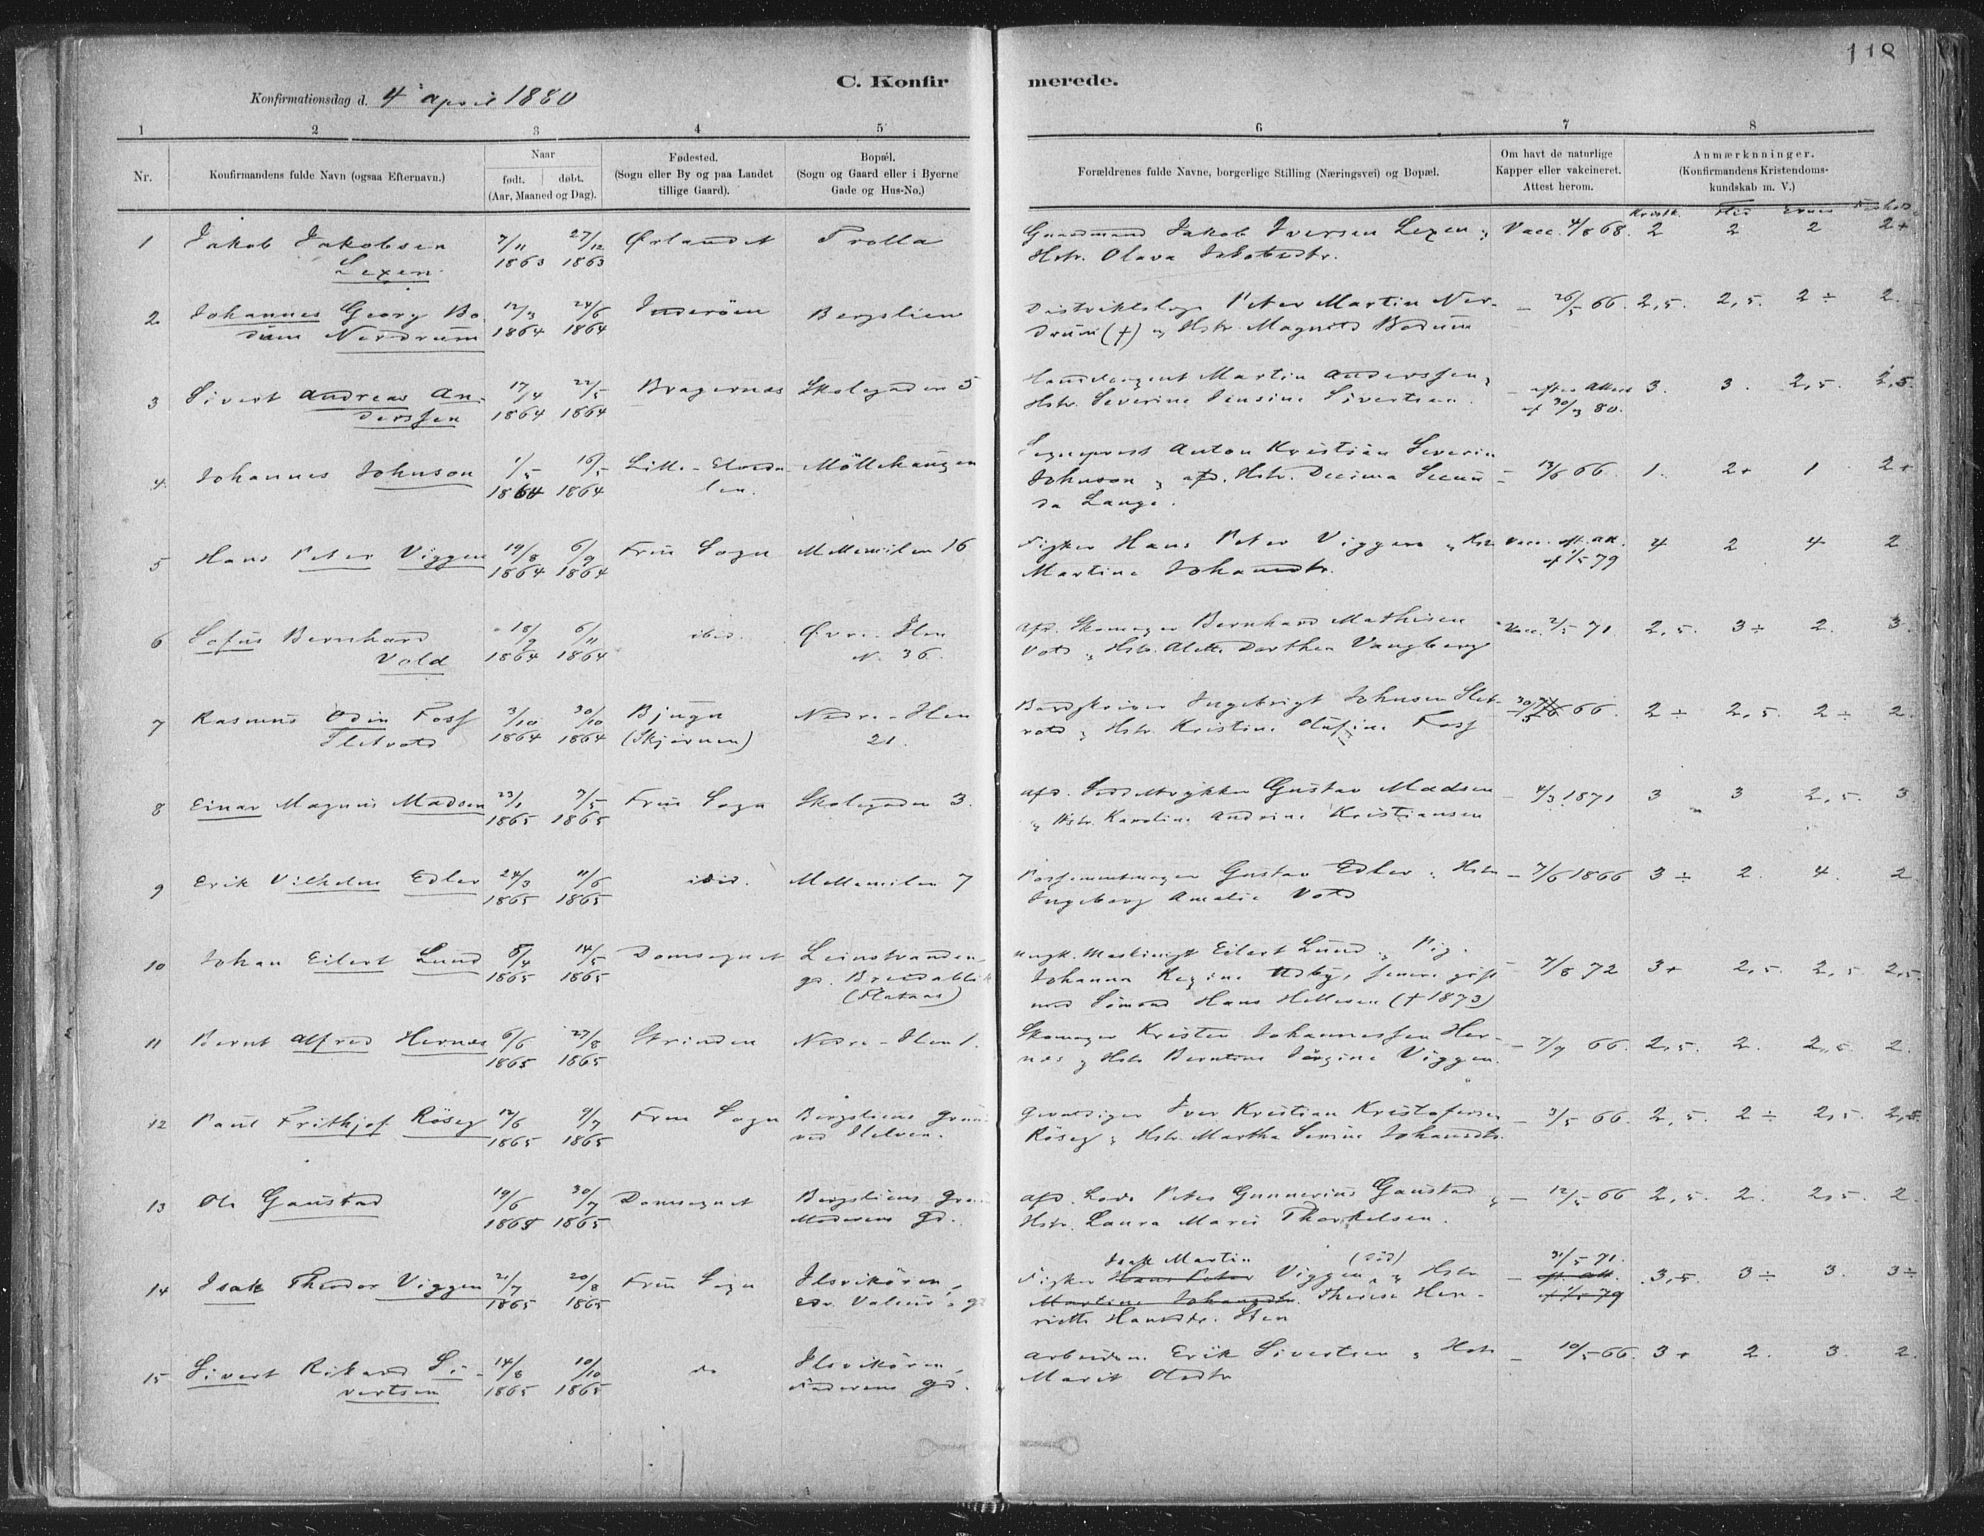 118
C. Konfir merede.
Konfirmationsdag d. 4 april 1880
1 2 3 4 5 6 7 8
Nr.
Konfirmandens fulde Navn (ogsaa Efternavn).
Naar
født. døbt.
(Aar, Maaned og Dag).
Fødested.
(Sogn eller By og paa Landet
tillige Gaard).
Bopæl.
(Sogn og Gaard eller i Byerne
Gade og Hus-No.)
Forældrenes fulde Navne, borgerlige Stilling (Næringsvei) og Bopæl.
Om havt de naturlige
Kopper eller vakcineret.
Attest herom.
Anmærkninger.
(Konfirmandens Kristendoms-
kundskab m. V.)
Kristk. Flid Evner
1 Jakob Jakobsen 7/11 27/12 Ørlandet Trolla Jakob Iversen Lexen Vacc. 4/8 68. 2 2 2 2+
Lexen 1863 1863 Hstr. Olava Jakobsdtr.
2 Johannes Georg Bo- 12/3 24/6 Inderøen Bergslien Distriktslæge Peter Martin Ner- – 26/5 66. 2,5. 2,5. 2÷ 2.
dum Nerdrum 1864 1864 drum (†) og Hstr. Magnild Bodum
3 Sivert Andreas An- 17/4 22/5 Bragernæs Skolegaden 5 Martin Anderssen – efter Attest 3. 3. 2,5. 2,5
derssen 1864 1864 Hstr. Severine Jensine Sivertsen. af 30/3 80.
4 Johannes Johnson 1/5 16/5 Lille-Elvda- Möllehaugen Sogneprest Anton Kristian Severin
1864 1864 len. Johnson og afd. Hstr. Decima Secun- – 13/6 66. 1. 2+ 1 2+
da Lange.
5 Hans Peter Viggen 19/8 6/9 Frue Sogn Mellemilen 16 Fisker Hans Peter Viggen og Hstr. Vacc. eft. att. 4 2 4 2
1864 1864 Martine Johansdtr. af 1/5 79
6 Sofus Bernhard 18/9 6/11 ibid. Øvre-Ilen afd. Skomager Bernhard Mathisen Vacc. 2/5 71. 2,5. 3÷ 2. 3.
Vold 1864 1864 N. 36. Vold og Hstr. Alette Dorthea Vangberg
7 Rasmus Odin Foss 3/10 30/10 Bjugn Nedre-Ilen Ingebrigt Johnsen Slet- 66. 2÷ 2,5. 2÷ 2.
Sletvold 1864 1864 (Skjørnen) 21. vold og Hstr. Kristine Olufine Foss
8 Einar Magnus Madsen 23/1 7/5 Frue Sogn Skolegaden 3. afd. Gustav Madsen – 4/3 1871 3 3 2,5. 3
1865 1865 og Hstr. Karoline Andrine Kristiansen
9 Erik Vilhelm Edler 24/3 11/6 ibid. Mellemilen 7 Gustav Edler og Hstr. – 7/6 1866 3÷ 2. 4. 2.
1865 1865 Ingeborg Amalie Vold
10 Johan Eilert Lund 8/4 14/5 Domsognet Leinstranden Ungk. Eilert Lund og Pig.
1865 1865 gd. Breidablik Johanna Regine Udby, senere gift – 7/8 72 3+ 2,5. 2,5 2,5.
(Flataas) med Sømand Hans Hellesen († 1873)
11 Bernt Alfred Hernæs 6/6 27/8 Strinden Nedre-Ilen 1. Skomager Kristen Johannessen Her-
1865 1865 næs og Hstr. Berntine Jörgine Viggen. – 7/7 66. 2,5. 2. 2,5. 2.
12 Paul Frithjof Röseg 12/6 9/7 Frue Sogn Bergsliens grund Iver Kristian Kristofersen – 3/5 66. 2,5. 2÷ 2,5. 2,5.
1865 1865 ved Ilelven. Röseg og Hstr. Martha Serine Johansdtr.
13 Ole Gaustad 19/6 30/7 Domsognet Bergsliens grund afd. Lods Peter Gunnerius Gaustad og – 12/5 66 2,5. 2. 2,5. 2.
1865 1865 gd. Hstr. Laura Marie Thorkelsen.
Isak Martin (død) 31/5 71.
14 Isak Theodor Viggen 21/7 20/8 Frue Sogn Ilsvikören, Fisker Hans Peter Viggen, og Hstr. – eft. att. 3,5. 3÷ 3. 3÷
1865 1865 gd Martine Johansdtr. Therese Hen- af 1/5 79
riette Hansdtr. Sten
15 Sivert Rikard Si- 14/8 10/10 do Ilsvikören, Arbeidsm. Erik Sivertsen og Hstr. – 10/5 66. 3+ 2. 3. 2.
vertsen 1865 1865 gd. Marit Olsdtr.